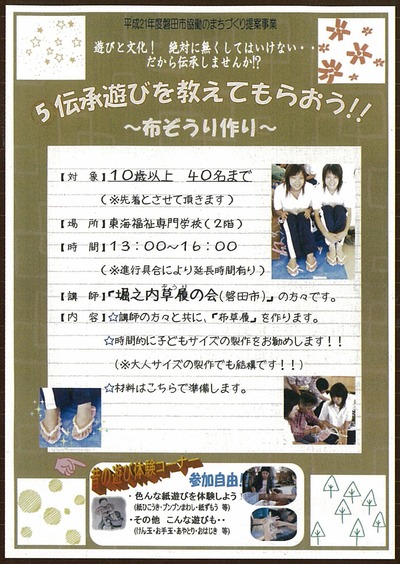 平成21年度磐田市協働のまちづくり提案事業
遊びと文化！ 絶対に無くしてはいけない・・・
だから伝承しませんか!?
5伝承遊びを教えてもらおう!!
～布ぞうり作り～
【対 象】１０歳以上 ４０名まで
（※先着とさせて頂きます）
【場 所】東海福祉専門学校（２階）
【時 間】１３：００～１６：００
（※進行具合により延長時間有り）
【講 師】「堀之内草履の会（磐田市）」の方々です。
【内 容】☆講師の方々と共に、「布草履」を作ります。
☆時間的に子どもサイズの製作をお勧めします！！
（※大人サイズの製作でも結構です！！）
☆材料はこちらで準備します。
昔の遊び体験コーナー
参加自由！
・色んな紙遊びを体験しよう
（紙ひこうき・ブンブンまわし・紙ずもう 等）
・その他 こんな遊びも・・
（けん玉・お手玉・あやとり・おはじき 等）